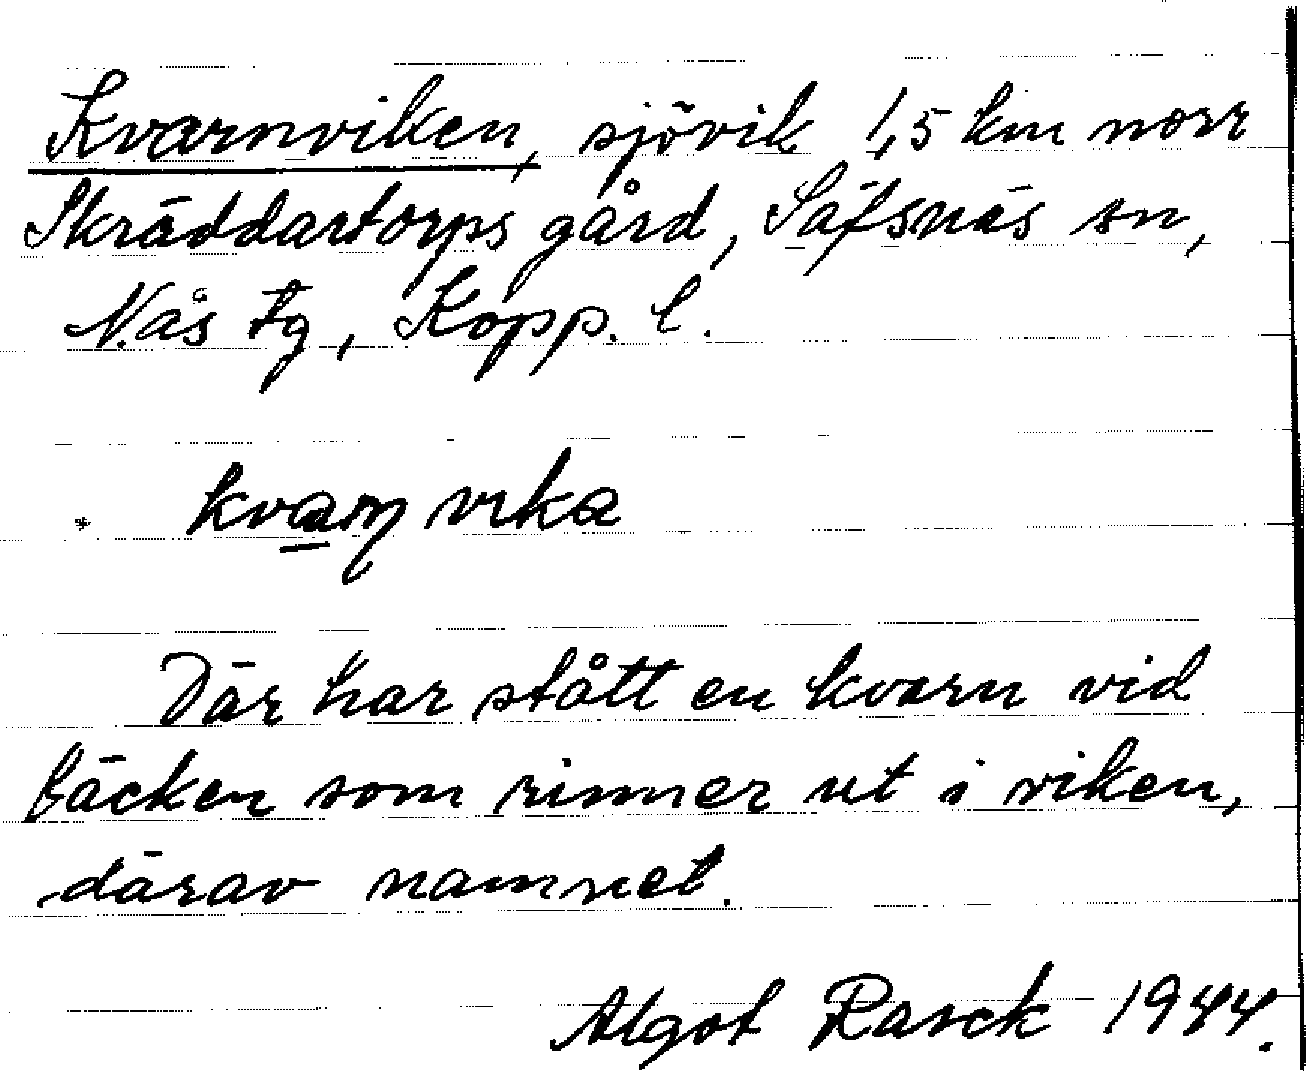 Kvarnviken, sjövik 1,5 km norr
Skräddartorps gård, Säfsnäs sn,
Nås tg, Kopp. l.
kvaɳ vika
Där har stått en kvarn vid
bäcken som rinner ut i viken,
därav namnet.
Algot Rasck 1944.